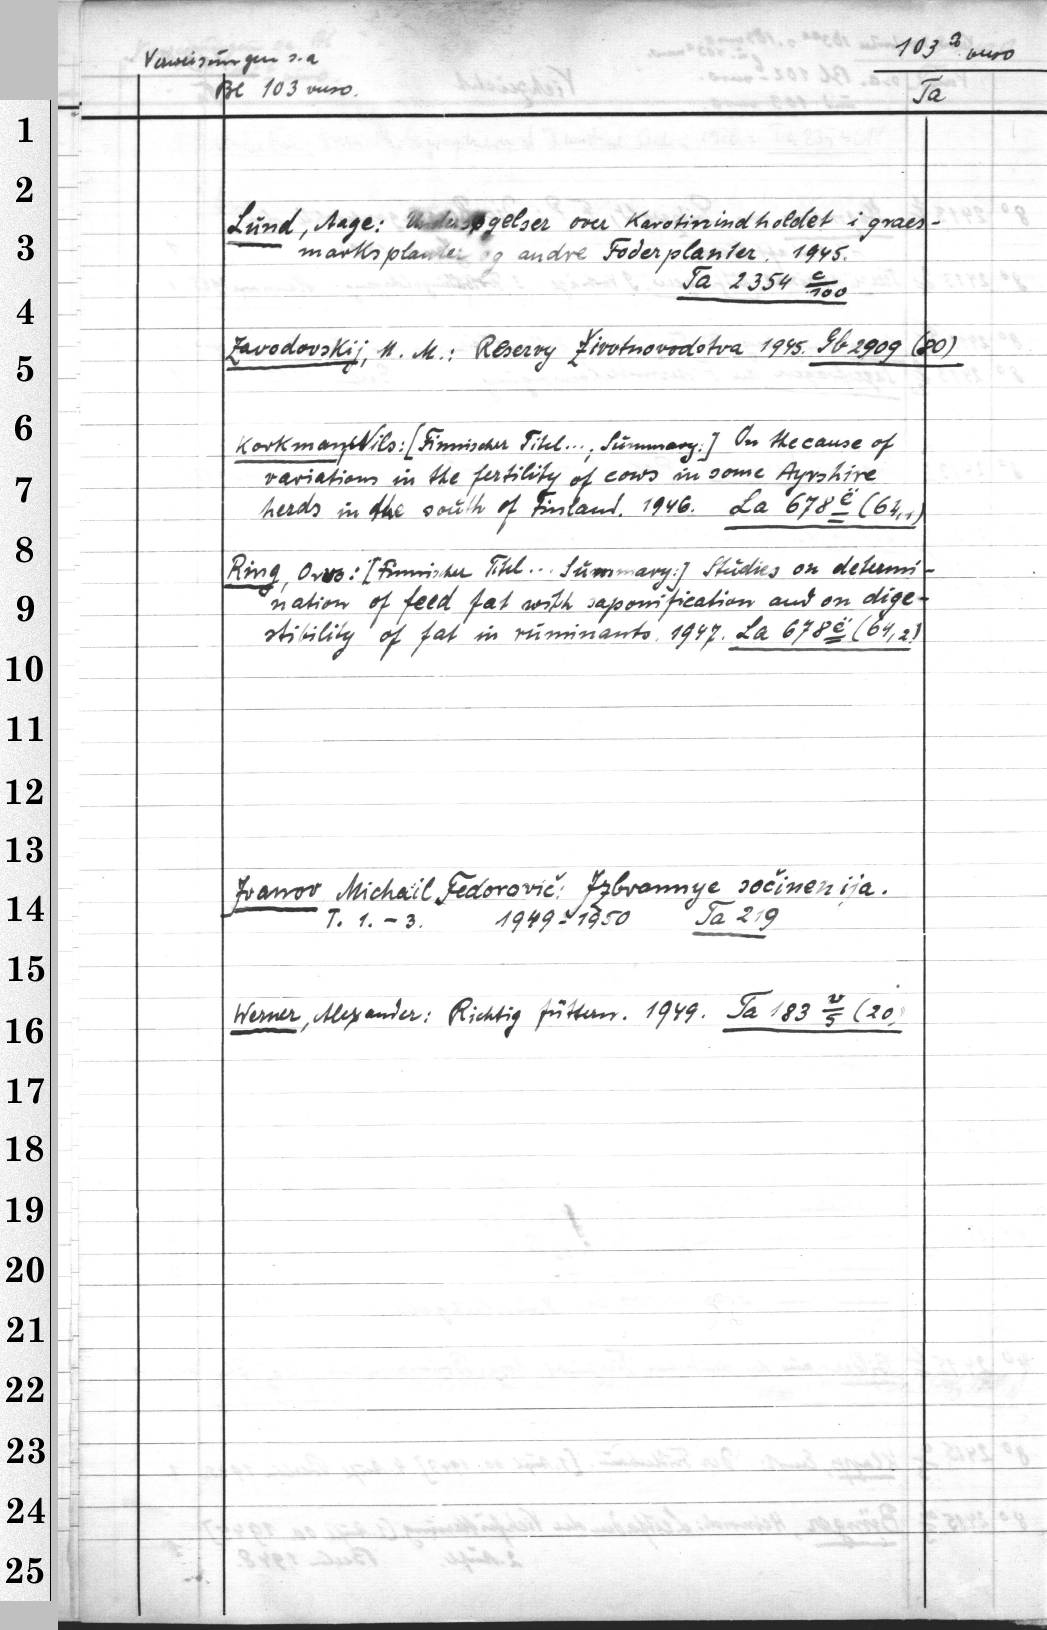 Verweisungen s.a
Bl 103 verso.
103 a verso
Ta
1
2
3
4
5
6
7
8
9
10
11
12
13
14
15
16
17
18
19
20
21
22
23
24
25
Lund, Aage: Undersøgelser over Karotinindholdet i graes-
marksplanter og andre Foderplanter. 1945.
Ta 2354 c/100
Zavodovskij, M. M.: Reservy Životnovodstva 1945. Gb 2909 (80)
Korkman, Nils: [Finnischer Titel..., Summary:] On the cause of
variations in the fertility of cows in some Ayrshire
herds in the south of Finland. 1946. La 678 ë (64,1)
Ring, : [Finnischer Titel... Summary:] Studies on determi-
nation of feed fat with saponification and on dige-
stibility of fat in ruminants. 1947. La 678 ë (64,2)
Ivanov Michail Fedorovič: Izbrannye sočinenija.
T. 1. - 3. 1949-1950 Ta 219
Werner, Alexander: Richtig füttern. 1949. Ta 183 v/5 (20)